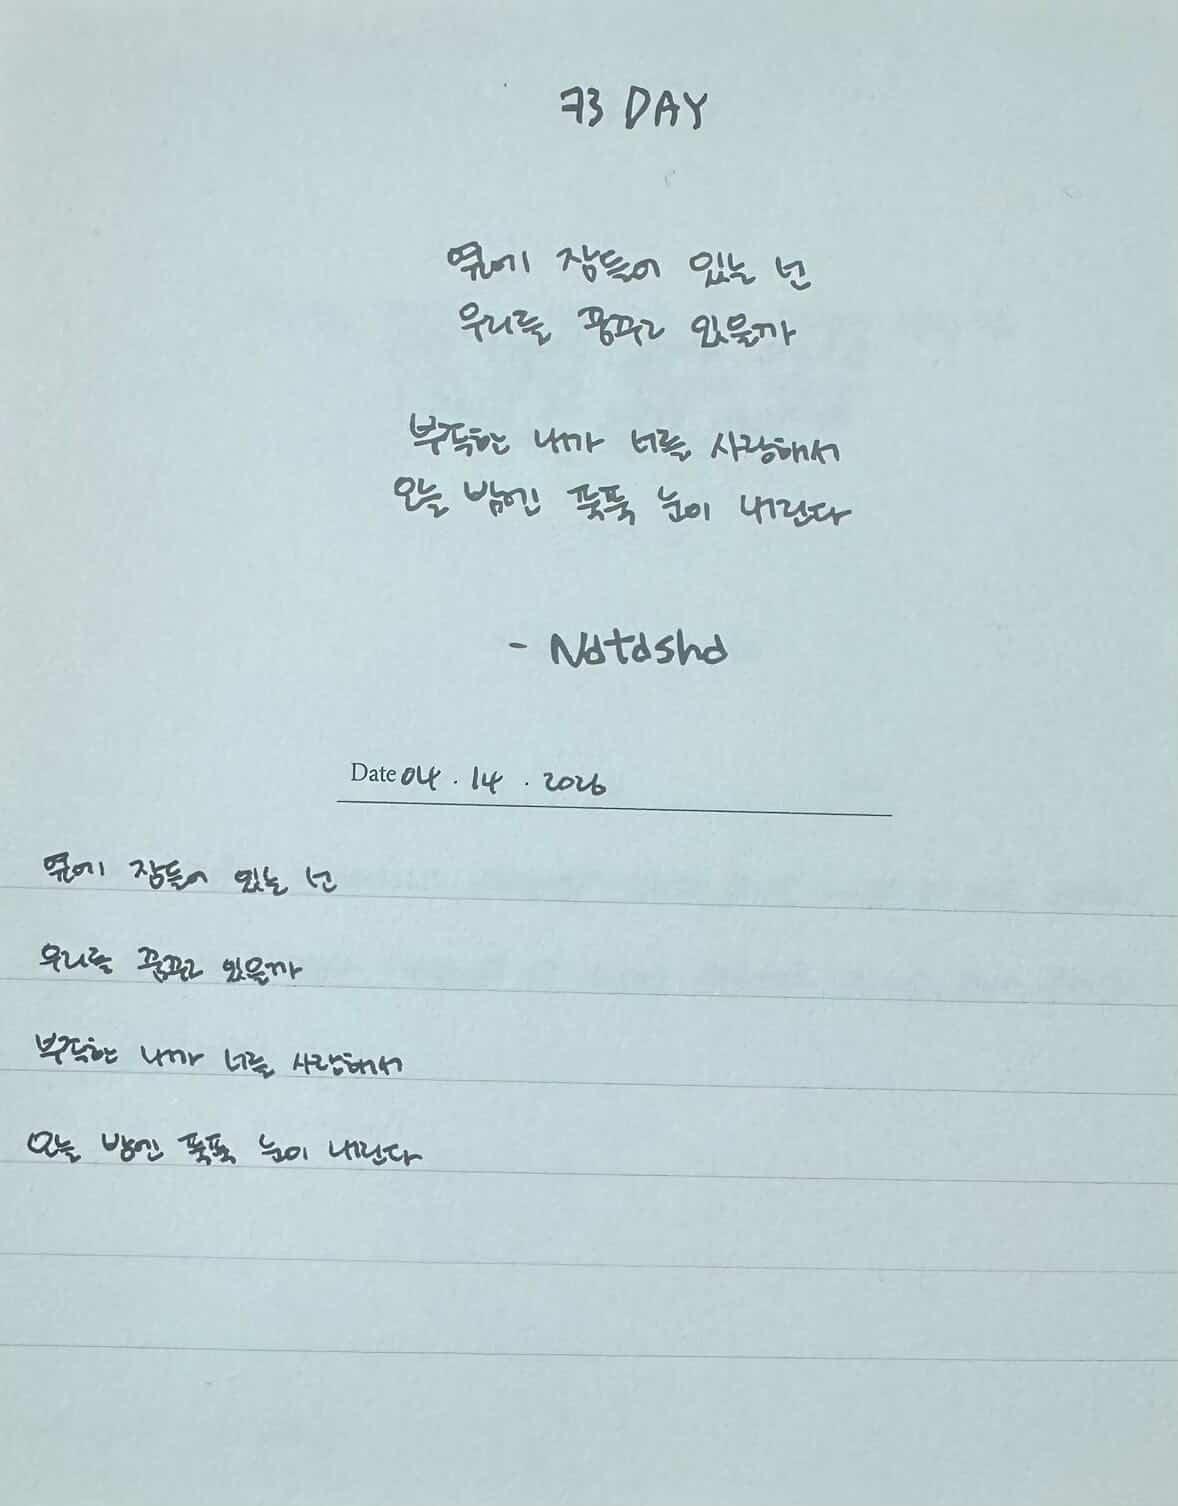 73 DAY
옆에 잠들어 있는 넌
우리를 꿈꾸고 있을까
부족한 내가 너를 사랑해서
오늘 밤엔 푹푹 눈이 내린다
- Natasha
Date 04 . 14 . 2026
옆에 잠들어 있는 넌
우리를 꿈꾸고 있을까
부족한 내가 너를 사랑해서
오늘 밤엔 푹푹 눈이 내린다